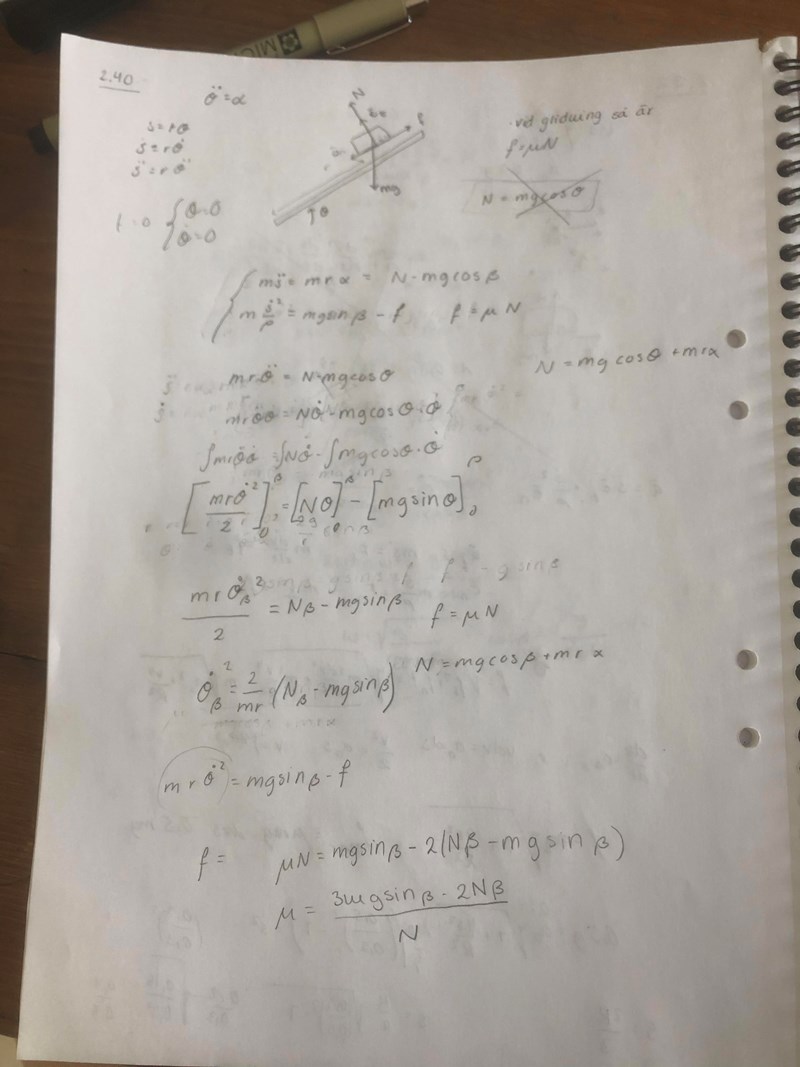 2.40
θ̈ = α
s = rθ
ṡ = rθ̇
s̈ = rθ̈
t=0 { θ=0
θ̇=0
N
f
mg
θ
vid glidning så är
f = μN
N = mgcosθ
{ ms̈ = mrα = N - mgcosβ
m ṡ²/ρ = mgsinβ - f f = μN
N = mg cosθ + mrα
mrθ̈ = N - mgcosθ
mrθ̈θ̇ = Nθ̇ - mgcosθ·θ̇
∫mrθ̈θ̇ = ∫Nθ̇ - ∫mgcosθ·θ̇
[mrθ̇²/2]₀^β = [Nθ]^β - [mgsinθ]₀^β
mrθ̇β²/2 = Nβ - mgsinβ f = μN
N = mgcosβ + mrα
θ̇β² = 2/mr (Nβ - mgsinβ)
mrθ̇² = mgsinβ - f
f = μN = mgsinβ - 2(Nβ - mgsinβ)
μ = 3mgsinβ - 2Nβ / N